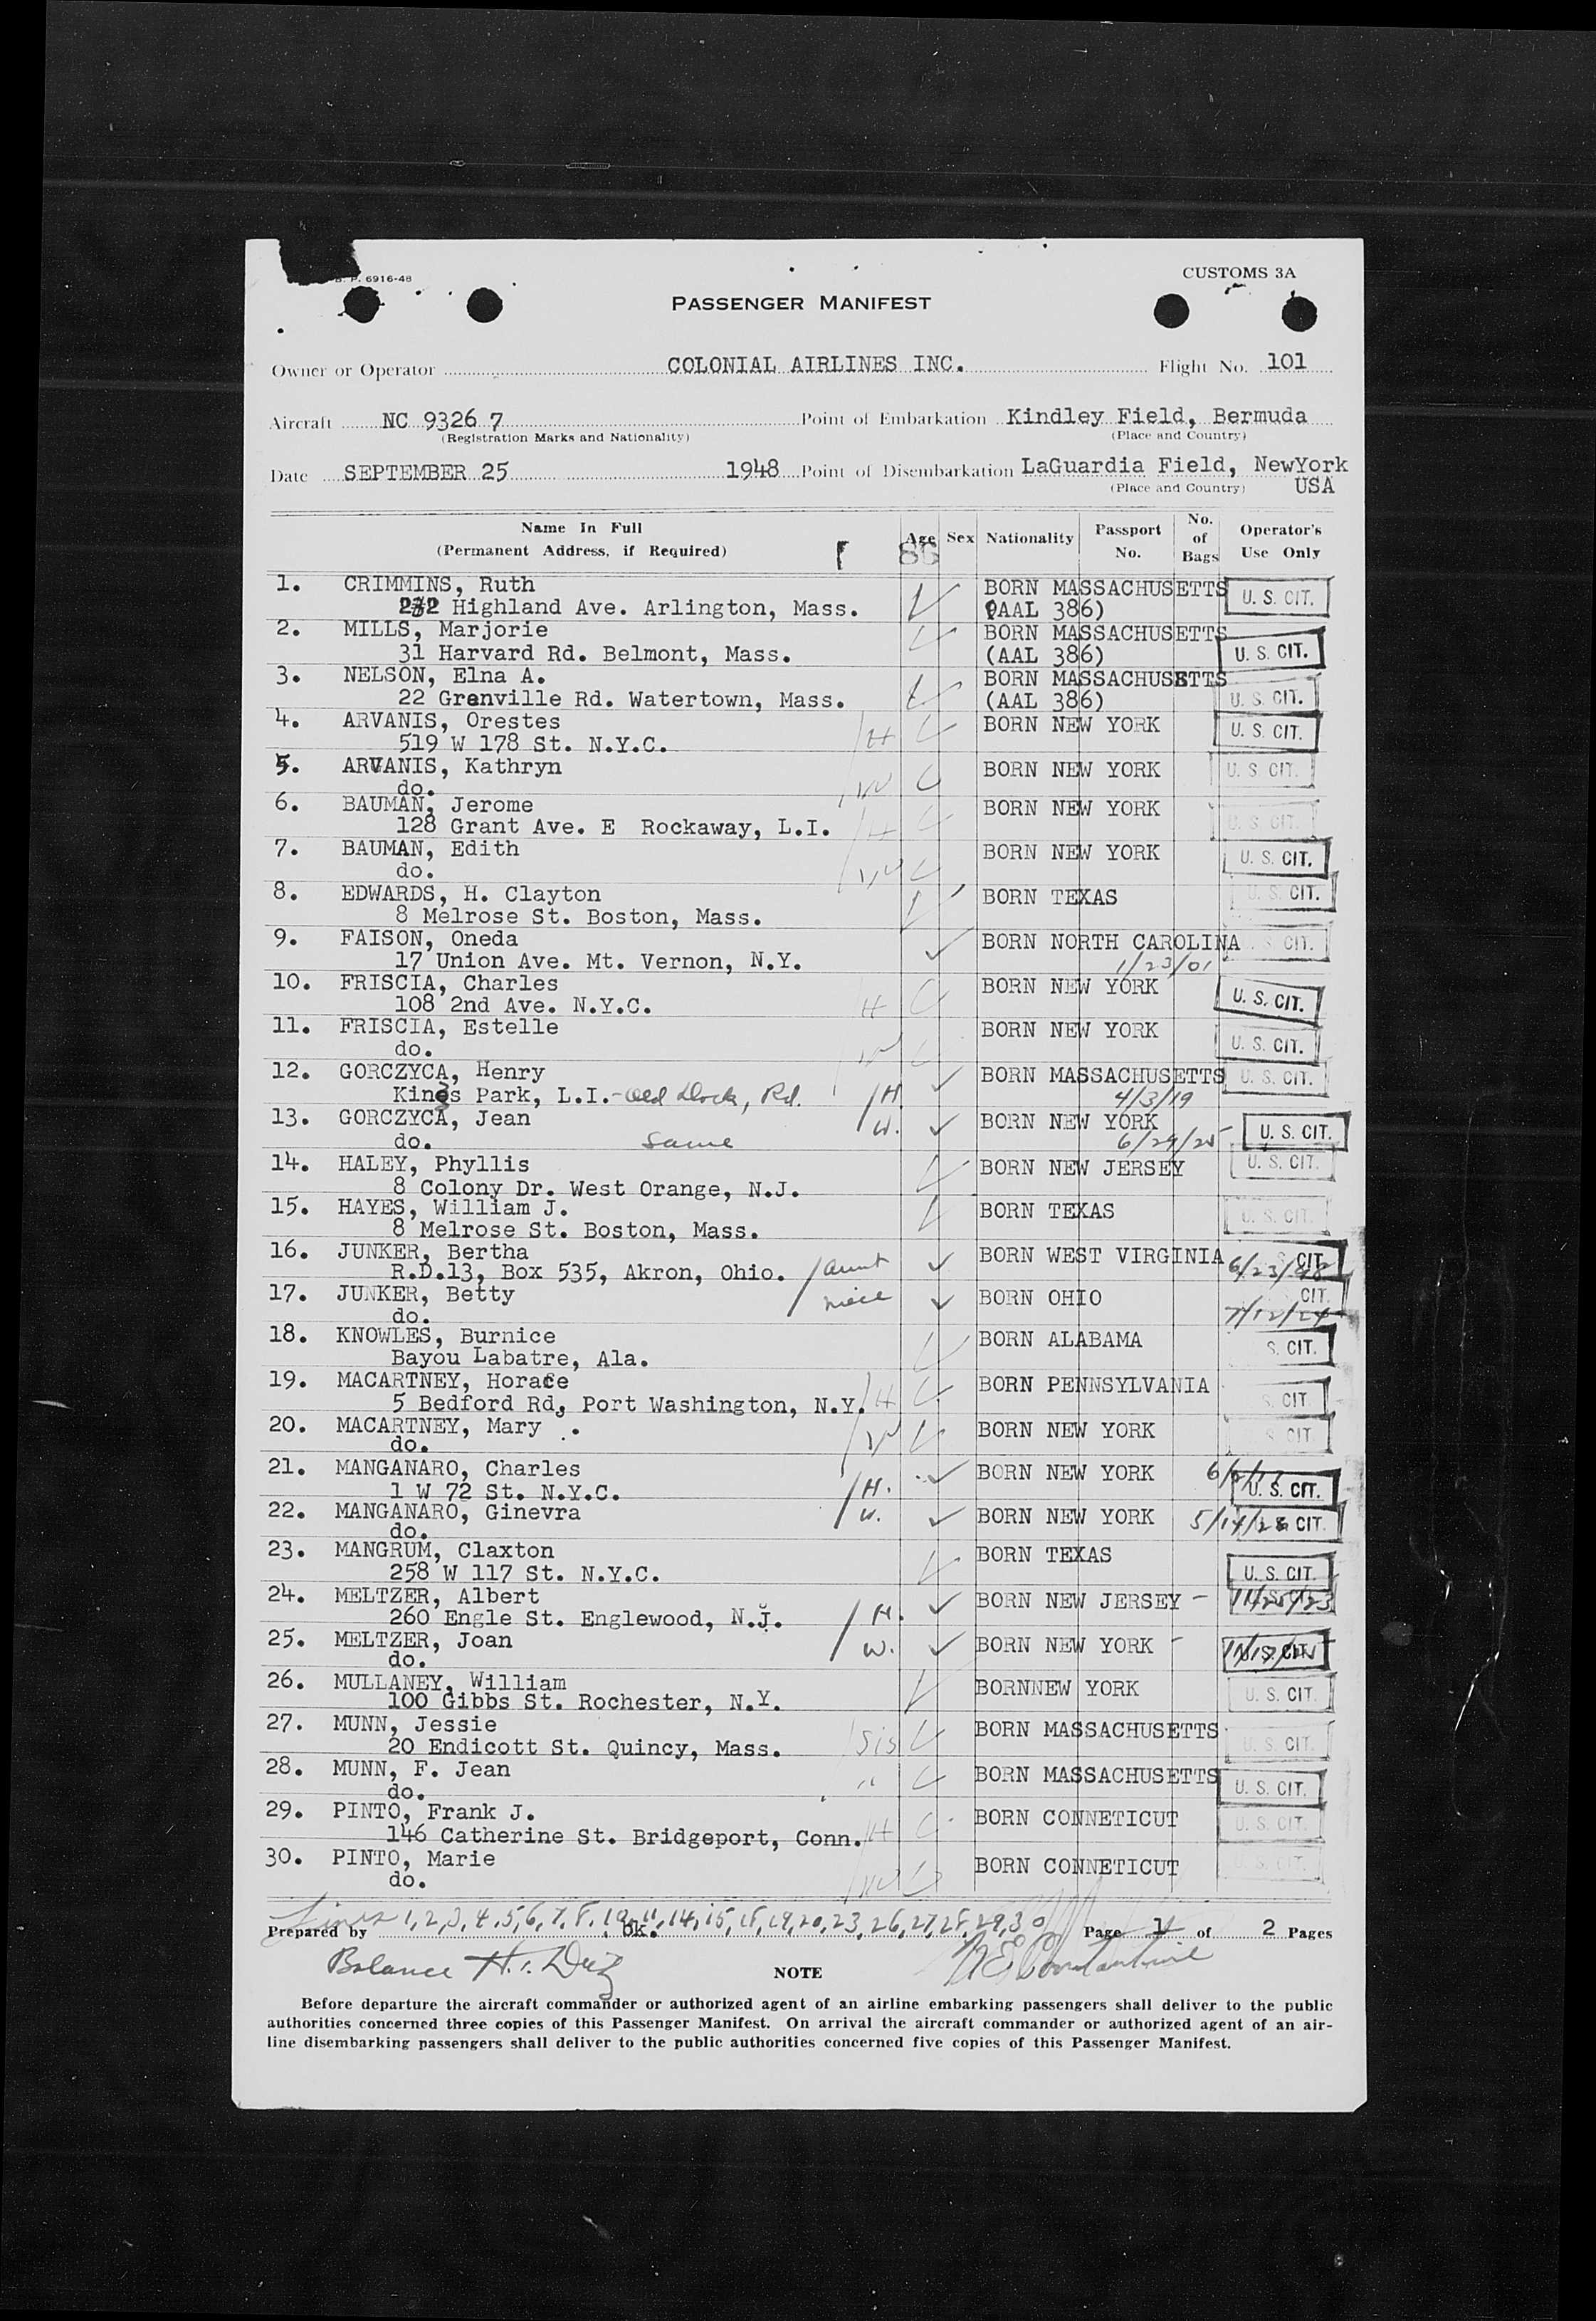 B. P. 6916-48
CUSTOMS 3A
PASSENGER MANIFEST
Owner or Operator COLONIAL AIRLINES INC. Flight No. 101
Aircraft NC 9326 7 Point of Embarkation Kindley Field, Bermuda
(Registration Marks and Nationality) (Place and Country)
Date SEPTEMBER 25 1948 Point of Disembarkation LaGuardia Field, NewYork
(Place and Country) USA
Name In Full (Permanent Address, if Required) Age Sex Nationality Passport No. No. of Bags Operator's Use Only
86
1. CRIMMINS, Ruth BORN MASSACHUSETTS U. S. CIT.
232 Highland Ave. Arlington, Mass. (AAL 386)
2. MILLS, Marjorie BORN MASSACHUSETTS
31 Harvard Rd. Belmont, Mass. (AAL 386) U. S. CIT.
3. NELSON, Elna A. BORN MASSACHUSETTS
22 Grenville Rd. Watertown, Mass. (AAL 386) U. S. CIT.
4. ARVANIS, Orestes BORN NEW YORK U. S. CIT.
519 W 178 St. N.Y.C. H
5. ARVANIS, Kathryn BORN NEW YORK U. S. CIT.
do. W
6. BAUMAN, Jerome BORN NEW YORK
128 Grant Ave. E Rockaway, L.I. H U. S. CIT.
7. BAUMAN, Edith BORN NEW YORK U. S. CIT.
do. W
8. EDWARDS, H. Clayton BORN TEXAS U. S. CIT.
8 Melrose St. Boston, Mass.
9. FAISON, Oneda BORN NORTH CAROLINA S. CIT.
17 Union Ave. Mt. Vernon, N.Y. 1/23/01
10. FRISCIA, Charles BORN NEW YORK U. S. CIT.
108 2nd Ave. N.Y.C. H
11. FRISCIA, Estelle BORN NEW YORK U. S. CIT.
do. W
12. GORCZYCA, Henry BORN MASSACHUSETTS U. S. CIT.
Kings Park, L.I.-Old Dock, Rd. H 4/3/19
13. GORCZYCA, Jean W. BORN NEW YORK U. S. CIT.
do. Same 6/29/25
14. HALEY, Phyllis BORN NEW JERSEY U. S. CIT.
8 Colony Dr. West Orange, N.J.
15. HAYES, William J. BORN TEXAS U. S. CIT.
8 Melrose St. Boston, Mass.
16. JUNKER, Bertha BORN WEST VIRGINIA S. CIT.
R.D.13, Box 535, Akron, Ohio. Aunt 6/23/98
17. JUNKER, Betty niece BORN OHIO CIT.
do. 7/12/24
18. KNOWLES, Burnice BORN ALABAMA S. CIT.
Bayou Labatre, Ala.
19. MACARTNEY, Horace BORN PENNSYLVANIA
5 Bedford Rd, Port Washington, N.Y. H S. CIT.
20. MACARTNEY, Mary BORN NEW YORK S. CIT
do. W
21. MANGANARO, Charles BORN NEW YORK
1 W 72 St. N.Y.C. H. U. S. CIT.
22. MANGANARO, Ginevra W. BORN NEW YORK 5/14/26 S CIT.
do.
23. MANGRUM, Claxton BORN TEXAS
258 W 117 St. N.Y.C. U. S. CIT.
24. MELTZER, Albert BORN NEW JERSEY - 11/20/23
260 Engle St. Englewood, N.J. H.
25. MELTZER, Joan BORN NEW YORK - U. S. CIT.
do. W.
26. MULLANEY, William BORNNEW YORK U. S. CIT.
100 Gibbs St. Rochester, N.Y.
27. MUNN, Jessie BORN MASSACHUSETTS
20 Endicott St. Quincy, Mass. Sis U. S. CIT.
28. MUNN, F. Jean BORN MASSACHUSETTS U. S. CIT.
do. "
29. PINTO, Frank J. BORN CONNETICUT U. S. CIT.
146 Catherine St. Bridgeport, Conn. H
30. PINTO, Marie BORN CONNETICUT U. S. CIT.
do. W
Lines 1,2,3,4,5,6,7,8,10,11,14,15,18,19,20,23,26,27,28,29,30
Prepared by bk. Page 1 of 2 Pages
Balance
NOTE
Before departure the aircraft commander or authorized agent of an airline embarking passengers shall deliver to the public
authorities concerned three copies of this Passenger Manifest. On arrival the aircraft commander or authorized agent of an air-
line disembarking passengers shall deliver to the public authorities concerned five copies of this Passenger Manifest.